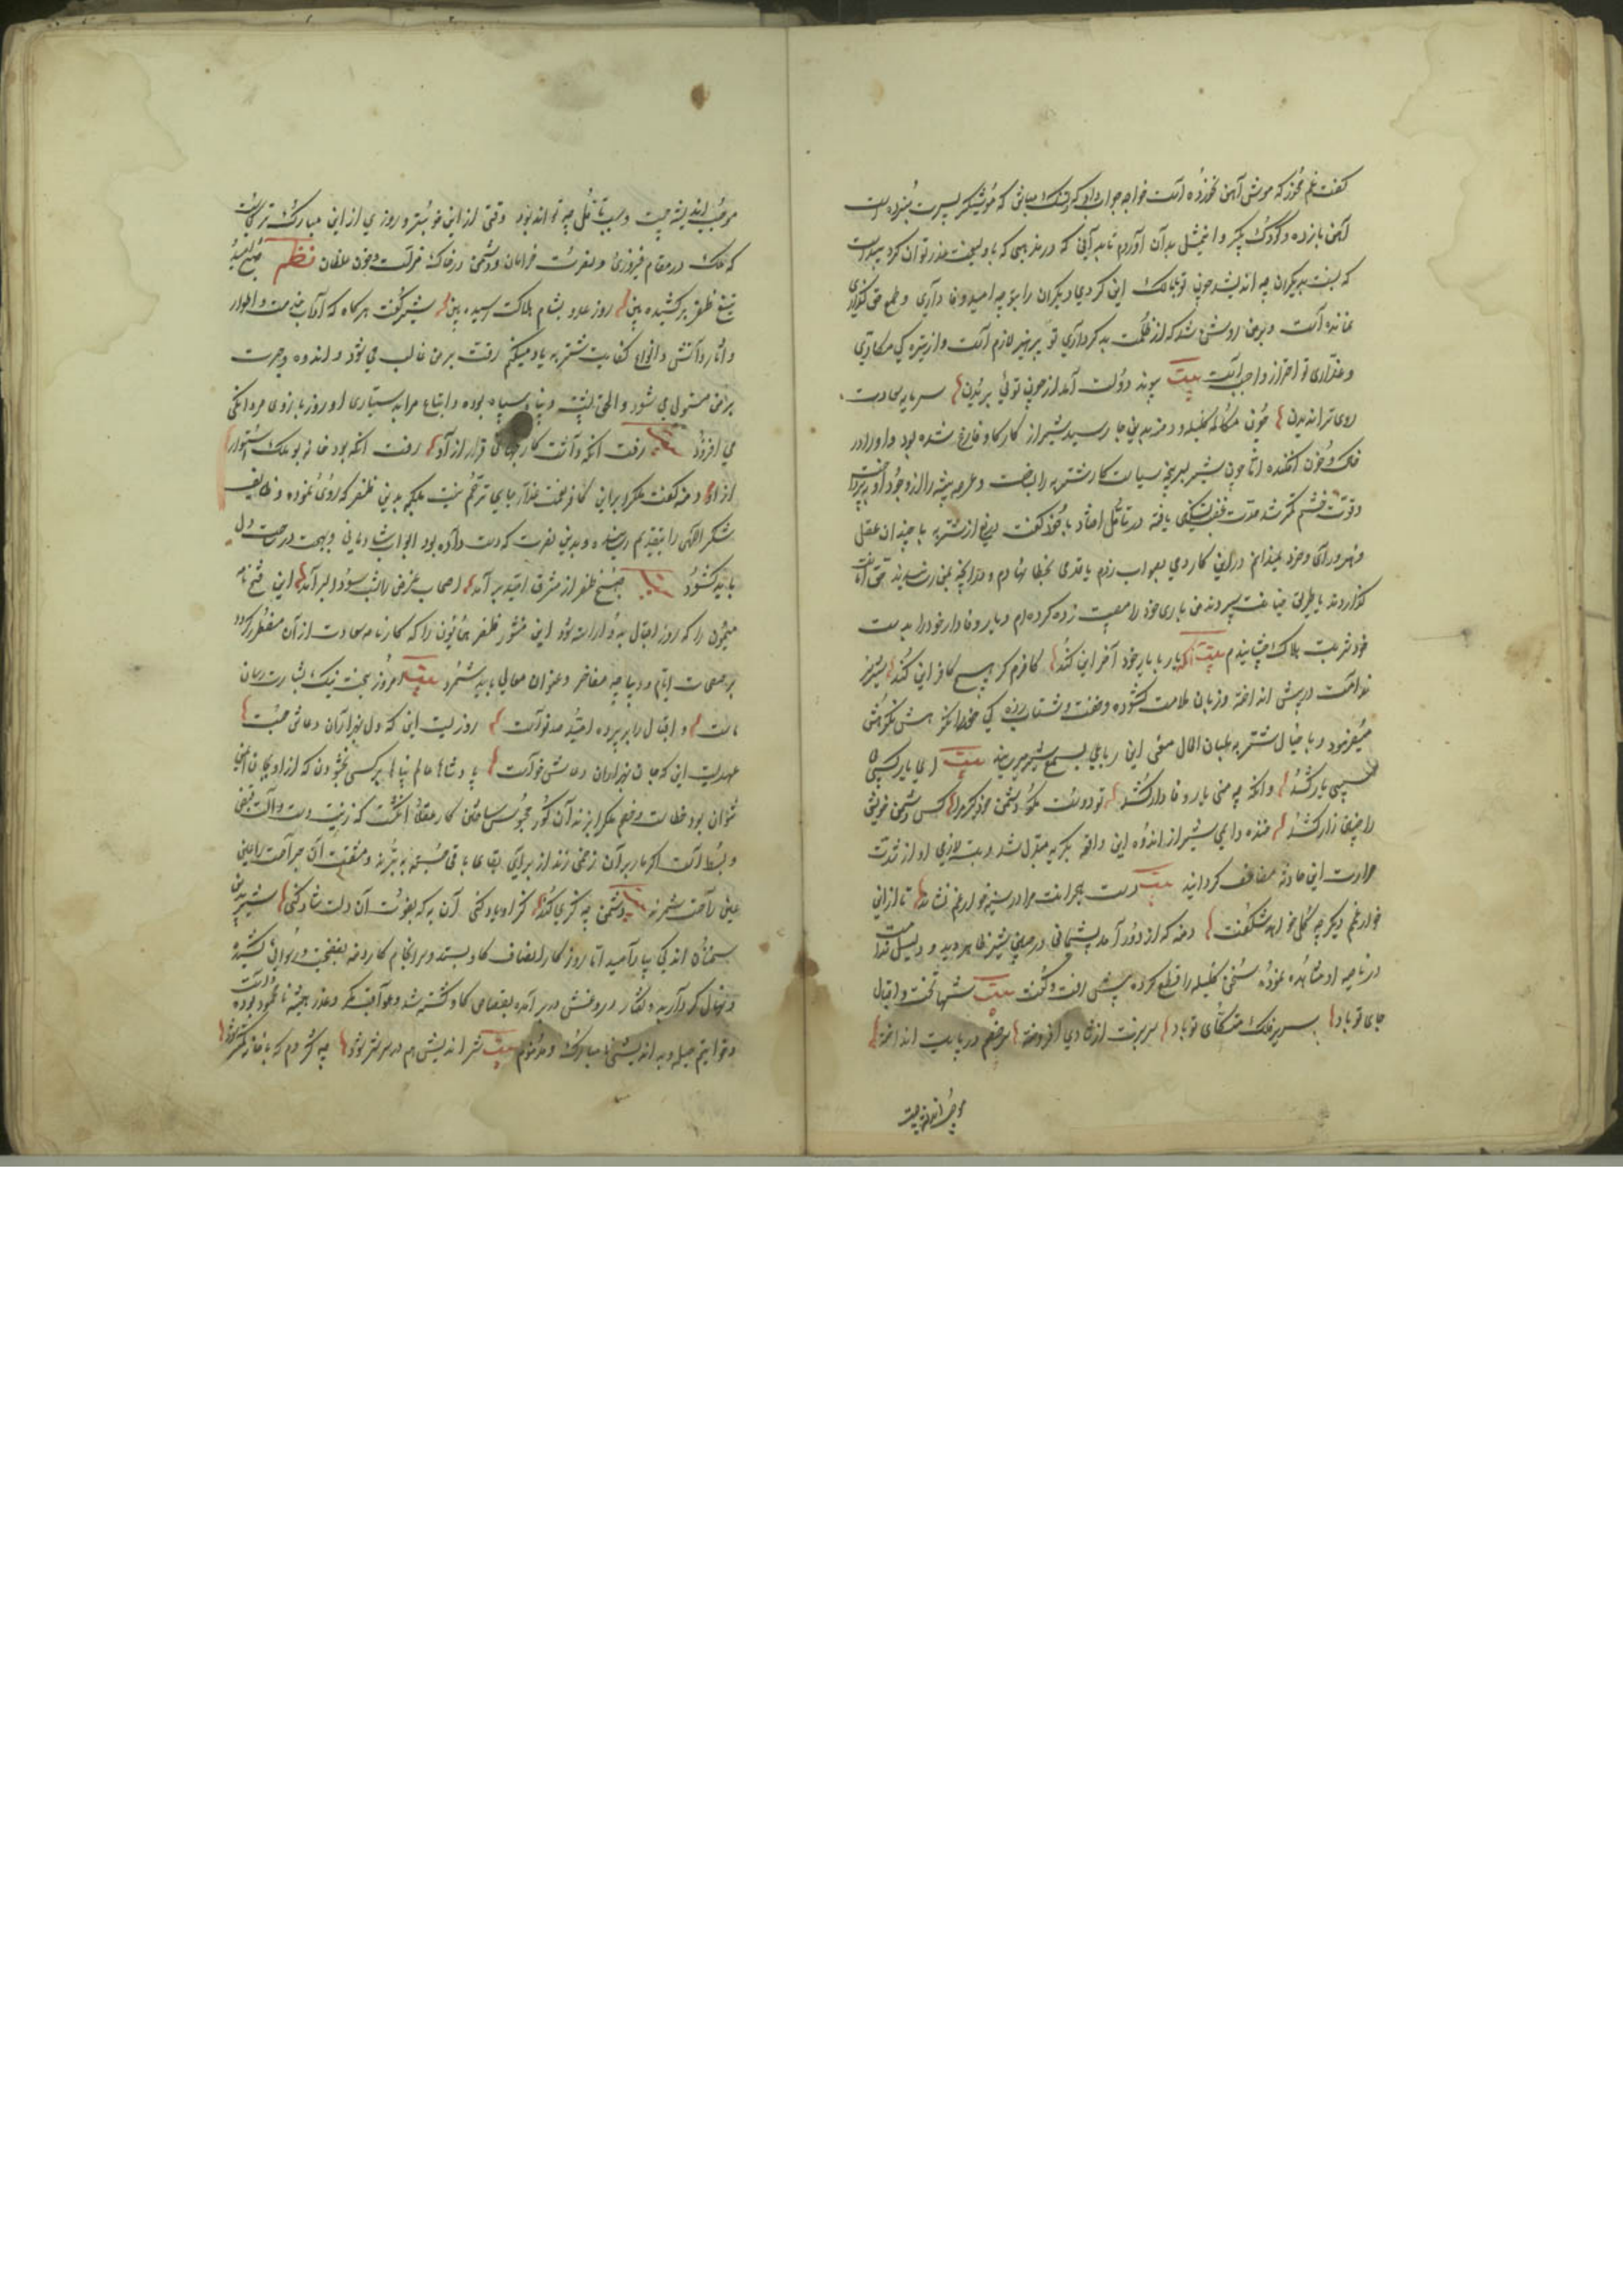 گفت غم مخور که موش آهن نخورده است خواجه جواب داد که دلتنک مباش که موشکیر پسرت نبرده است
آهن باز ده و کودک بکیر و این مثل بدان آوردم تا بدانی که در مذهبی که با ولی نعمت غدر توان کرد پیداست
که نسبت بدیکران چه اندیشند چون تو با ملک این کردی دیکران را بتو چه امید وفا داری و طمع حق کذاری
نمانده است و بر من روشن شد که از ظلمت بد کرداری تو پرهیز لازم است و از تیره کی مکاری
و غداری تو احتراز واجب است بیت پیوند دولت آمد از چون توئی بریدن سرمایه سعادت
روی ترا ندیدن چون مکالمه کلیله و دمنه بدین جا رسید شیر از کار کاو فارغ شده بود و او را در
خاک و خون افکنده اما چون شیر بسرپنجه سیاست کار شتربه را بساخت و عرصه بیشه را از وجود او بپرداخت
و قوت خشم کمتر شد حدت غضب تسکین یافته در تامل افتاد با خود گفت دریغ از شتربه با چندان عقل
و هنر و رای و خرد نمیدانم در این کار دمی بصواب زدم یا قدمی بخطا نهادم و در آنچه بمن رسانیدند حق امانت
کذاردند یا طریق خیانت سپردند من باری خود را مصیبت زده کرده ام و یار وفادار خود را بدست
خود شربت هلاک چشانیدم بیت آنکه یار با یار خود آخر این کند کافرم کر هیچ کافر این کند شیر سر
ندامت در پیش انداخته و زبان ملامت کشوده و خفت و شتاب زده کی خود را نکوهش
میفرمود و با خیال شتربه بلسان الحال معنی این رباعی بسمع شیر میرسانید بیت ای یار کسی
بی سببی یار کشد وانکه چه منی یار وفادار کشد تو دوست مکو دشمن خود کیر مرا کس دشمن خویش
را چنین زار کشد خنده دایمی شیر از اندوه این واقعه بکریه مبدل شد و بیت لازمی او از شدت
حرارت این حادثه مضاعف کردانید بیت دست هجرانت مرا در سینه خار غم نشاند تا از این
خار غم دیکر چه کل خواهد شکفت دمنه که از دور آمد پشیمانی در جبین شیر ظاهر دید و دلیل ندامت
در ناصیه او مشاهده نموده سخن کلیله را قطع کرده پیش رفت و گفت بیت شها تخت و اقبال
جای تو باد سریر فلک متکای تو باد سر بخت از شادی افروخته سر خصم در پایت انداخته
موجب اندیشه چیست
موجب اندیشه چیست و سبب تامل چه تواند بود وقتی از این خوبتر و روزی از این مبارک تر کجاست
که ملک در مقام فیروزی و نصرت خرامان و دشمن در خاک مذلت و خون غلطان نظم صبح امید
تیغ ظفر بر کشیده بین روز عدو بشام هلاکت رسیده بین شیر گفت هر کاه که آداب خدمت و اطوار
و آثار دانش و انواع کفایت شتربه یاد میکنم رقت بر من غالب می شود و اندوه و حسرت
بر من مستولی می شود و الحق پشت و پناه سپاه بوده و اتباع مرا بدستیاری او روز بازوی مردانکی
می افزود رفت انکه داشت کار جهانی قرار از او رفت انکه بود خانه بو ملک استوار
از او دمنه گفت ملک را بر این کافر نعمت غدار جای ترحم نیست بلکه بدین ظفر که روی نموده وظایف
شکر الهی را بتقدیم رسانیده و بدین نصرت که دست داده بود ابواب شادمانی و بهجت در ساحت دل
باید کشود صبح ظفر از مشرق امید بر آمد اصحاب غرض را شب سودا بسر آمد این فتح نامه
میمون را که روز اقبال بدو آراسته شود این منشور ظفر همایون را که کارنامه سعادت از آن مفطر کردد
بر صفحات ایام و دیباچه مفاخر و عنوان معالی باید شمرد بیت امروز بخت نیک بشارت رسان
ماست و اقبال را بر پرده امید صد نواست روزیست این که دل بهزاران دعاش جست
عهدیست این که جان بهزاران دعاش خواست پادشاها عالم پناها بر کسی بخشودن که از او بجان ایمن
نتوان بود خطاست و خصم ملک را بزندان کور محبوس ساختن کار عقلا انکشت که زینت دست و آلت قبض
و بسط است اکر مار بر آن زخمی زند از برای بقای باقی جسم ببرند و مشقت آن جراحت را عین
عین راحت شمرند دشمن چه کزی کند کر او یاد کنی آن به که بفوت آن دلت شاد کنی شیر بدین
سخنان اندکی بیارامید اما روزکار انصاف کاو بستد و سرانجام کار دمنه بفضیحت و رسوائی کشید
و نهال کردار بد و کفتار دروغش در بر آمده بقصاص کاو کشته شد و عواقب مکر و عذر همیشه نامحمود بوده است
و خواتیم حیله و بد اندیشی نامبارک و مذموم بیت شر اندیش هم در سر شر شود چو کژدم که با خانه کمتر شود